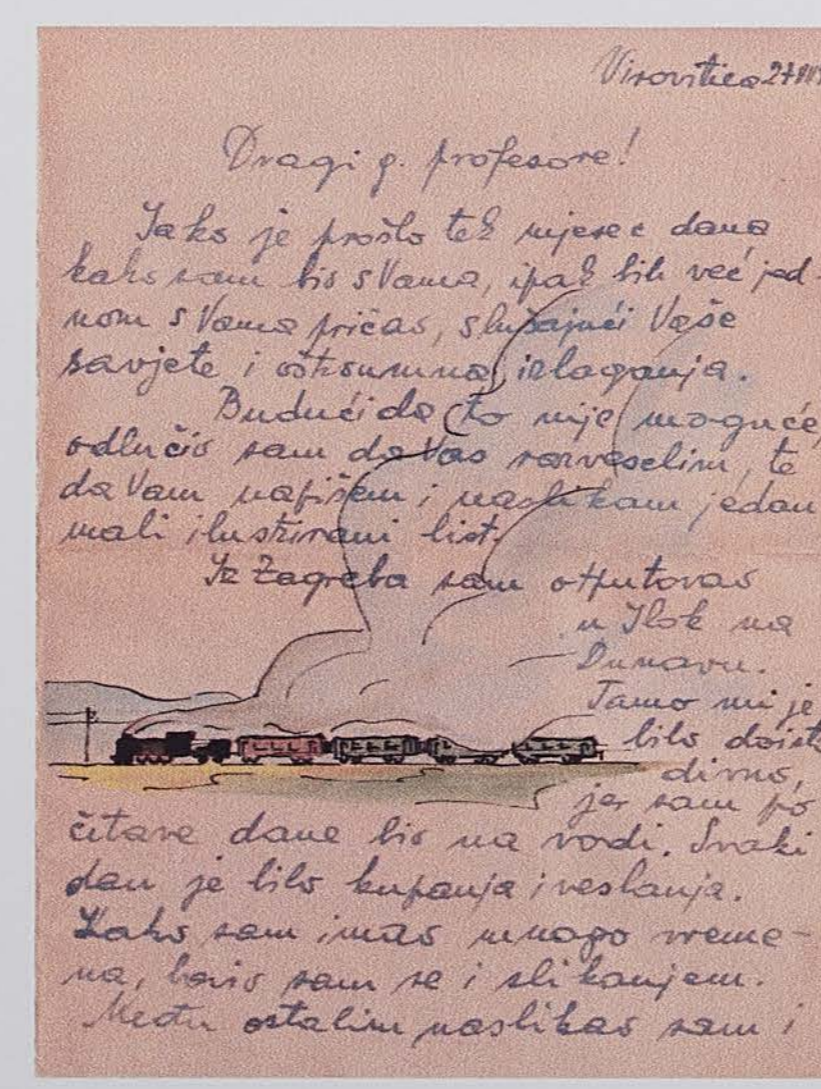 Virovitica 27
Dragi g. profesore!
Iako je prošlo tek mjesec dana
kako sam bio s Vama, ipak bih već jed-
nom s Vama pričao, slušajući Vaše
savjete i oštroumna izlaganja.
Budući da to nije moguće,
odlučio sam da Vas razveselim, te
da Vam napišem i naslikam jedan
mali ilustrirani list.
Iz Zagreba sam otputovao
u Ilok na
Dunavu.
Tamo mi je
bilo doista
divno,
jer sam po
čitave dane bio na vodi. Svaki
dan je bilo kupanja i veslanja.
Kako sam imao mnogo vreme-
na, bavio sam se i slikanjem.
Među ostalim naslikao sam i